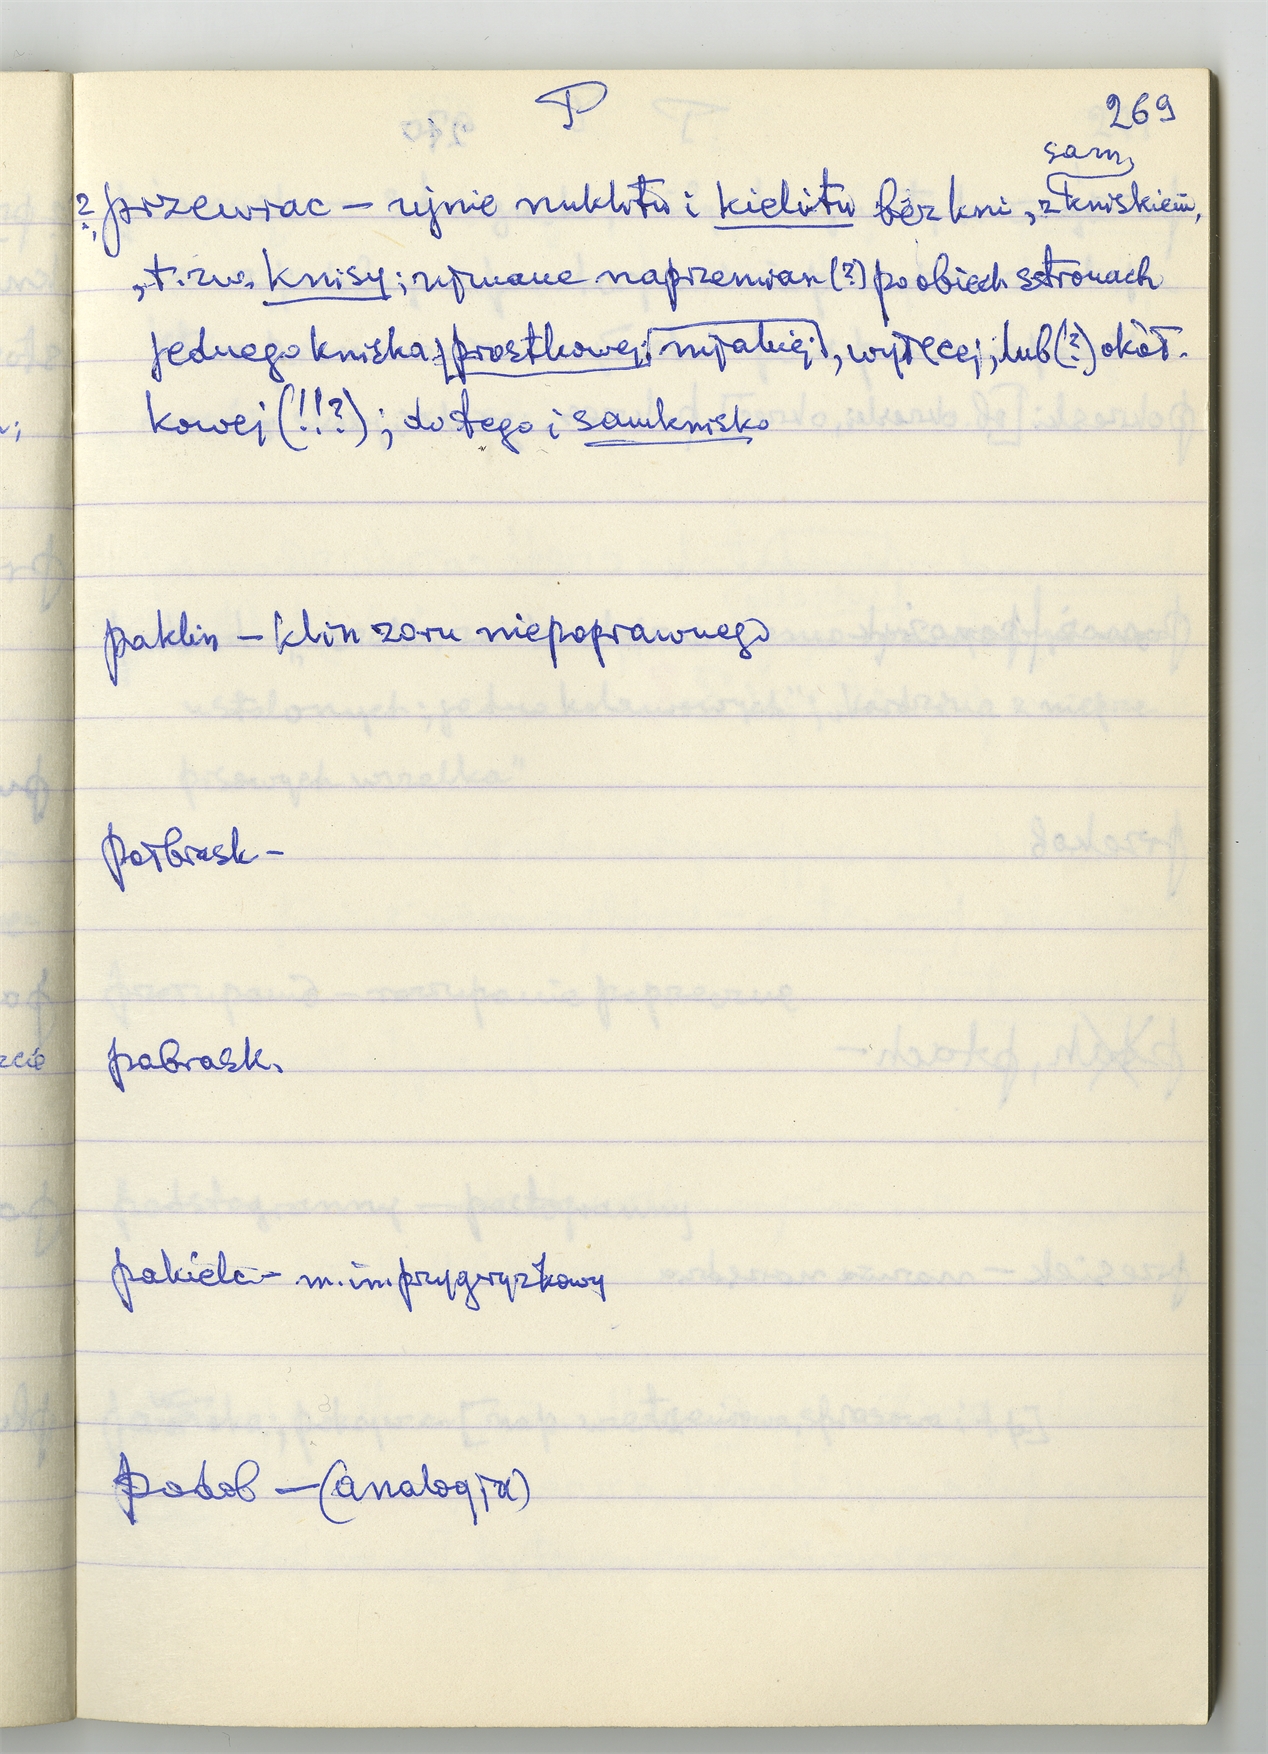 P
269
sam,
? przewrac – ujnie nukłotu i kielutu bez kni, z kniskiem,
, t. zw. knisy; ujmane naprzemian (?) po obiech sstronach
jednego kniska, prostkowej, mijakiej, wyłęcej, lub (?) okół-
kowej (!!?); do tego i samknisko
paklin – klin zoru niepoprawnego
połbrask –
pabrask.
pakielc – m. in. przygryzkowy
podob – (analogja)